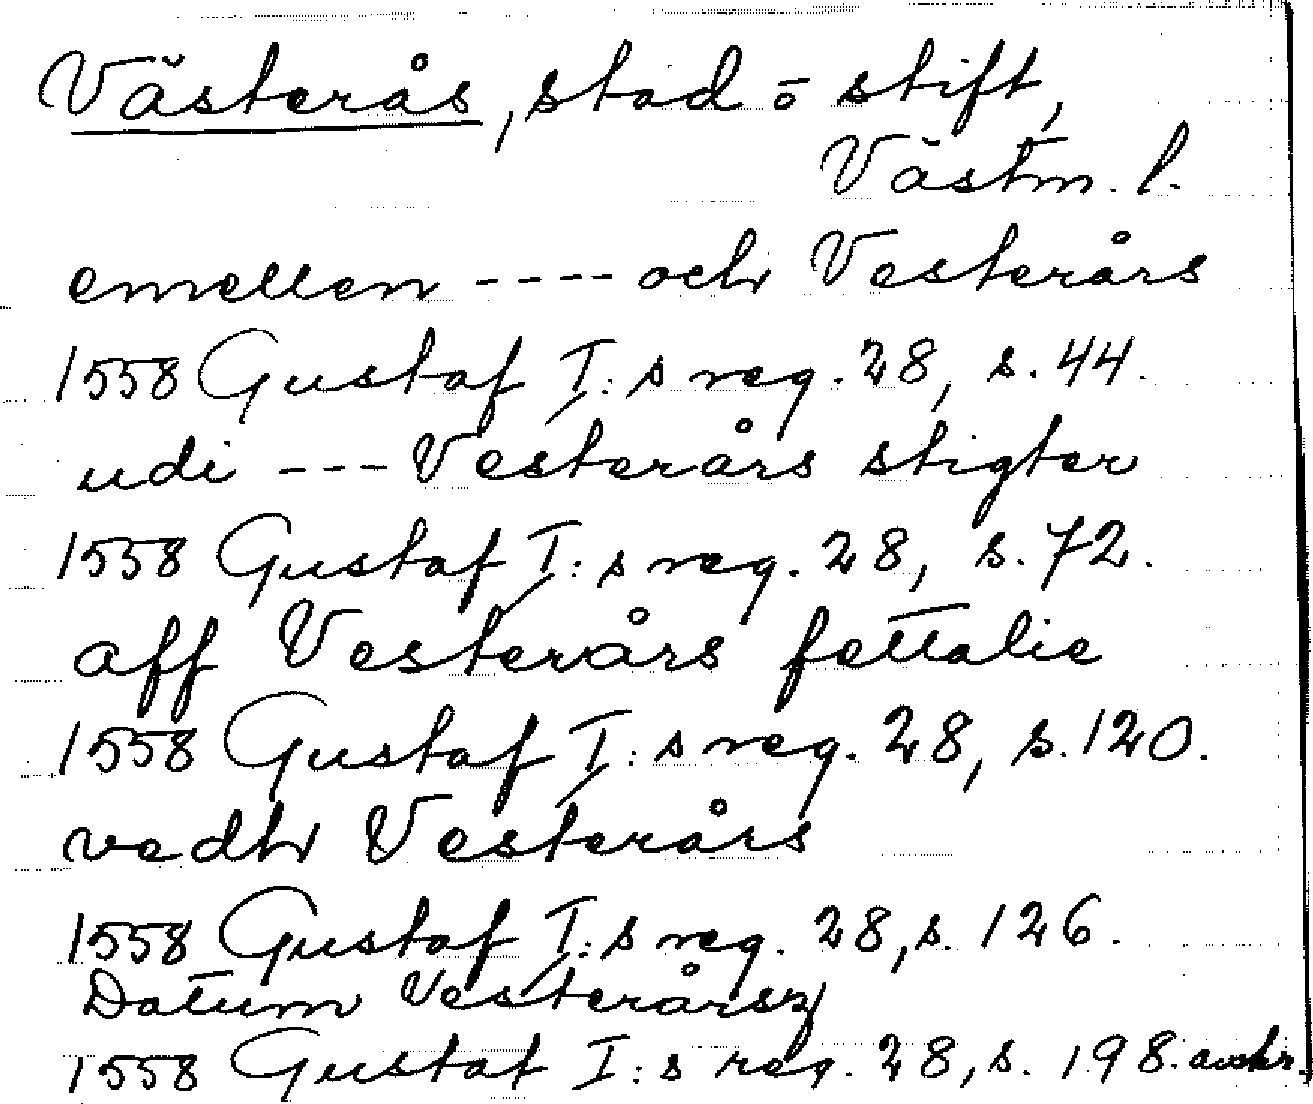 Västerås, stad o stift,
Västm. l.
emellen ---- och Vesterårs
1558 Gustaf I:s reg. 28, s. 44.
udi --- Vesterårs stigter
1558 Gustaf I:s reg. 28, s. 72.
aff Vesterårs fettalie
1558 Gustaf I:s reg. 28, s. 120.
vedh Vesterårs
1558 Gustaf I:s reg. 28, s. 126.
Datum Vesterårsz
1558 Gustaf I:s reg. 28, s. 198.